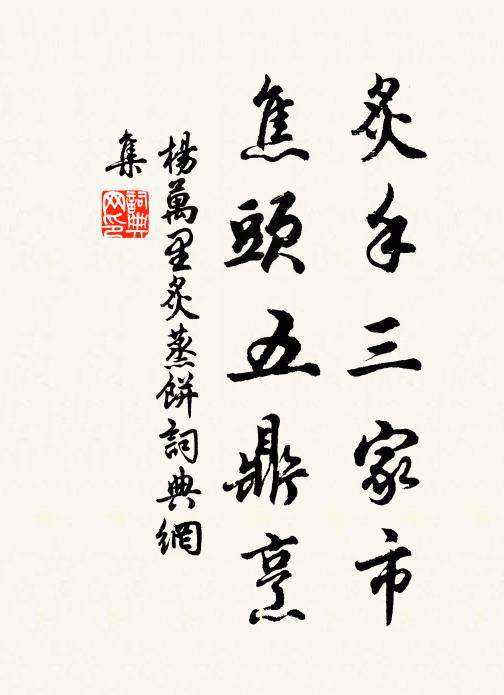 炙手三家市
焦頭五鼎烹
楊萬里炙蒸餅詞典網
集
詞典
网印